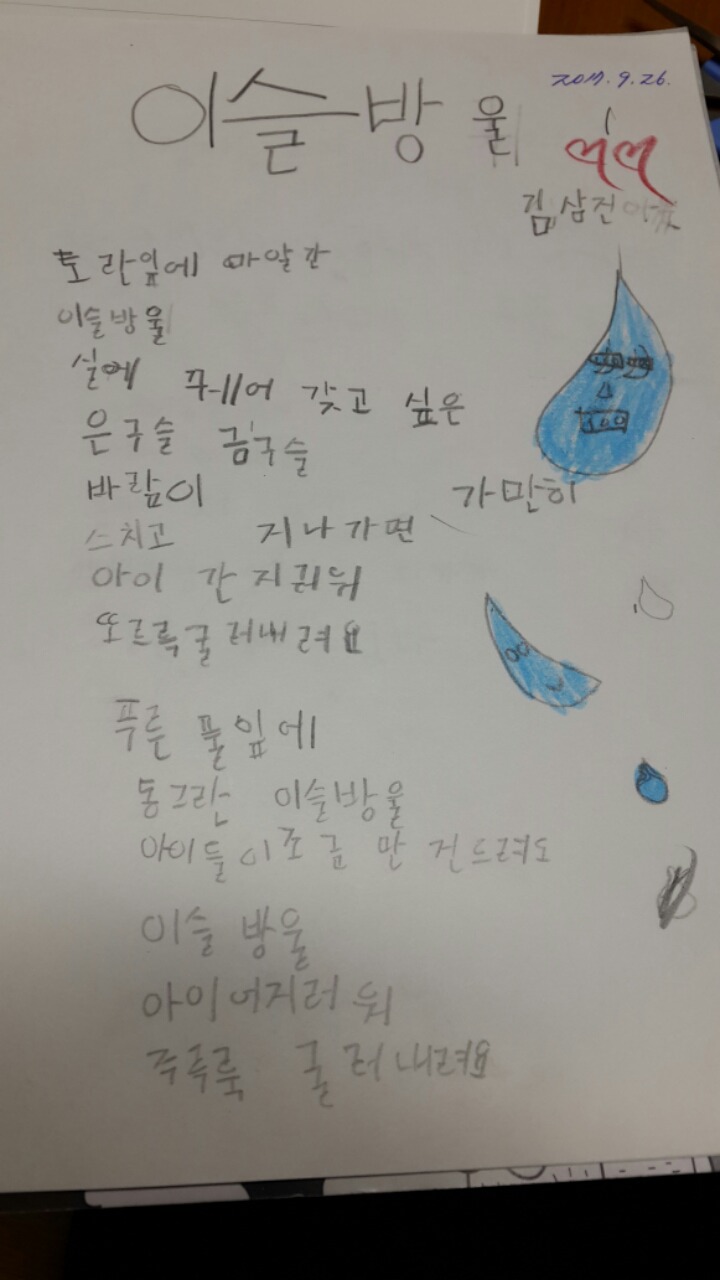 2017.9.26.
이슬방울
김삼진
토란잎에 마알간
이슬방울
실에 꿰어 갖고 싶은
은구슬 금구슬
바람이 가만히
스치고 지나가면
아이 간지러워
또르륵굴러내려요
푸른 풀잎에
동그란 이슬방울
아이들이조금만 건드려도
이슬 방울
아이어지러워
주루룩 굴러내려요